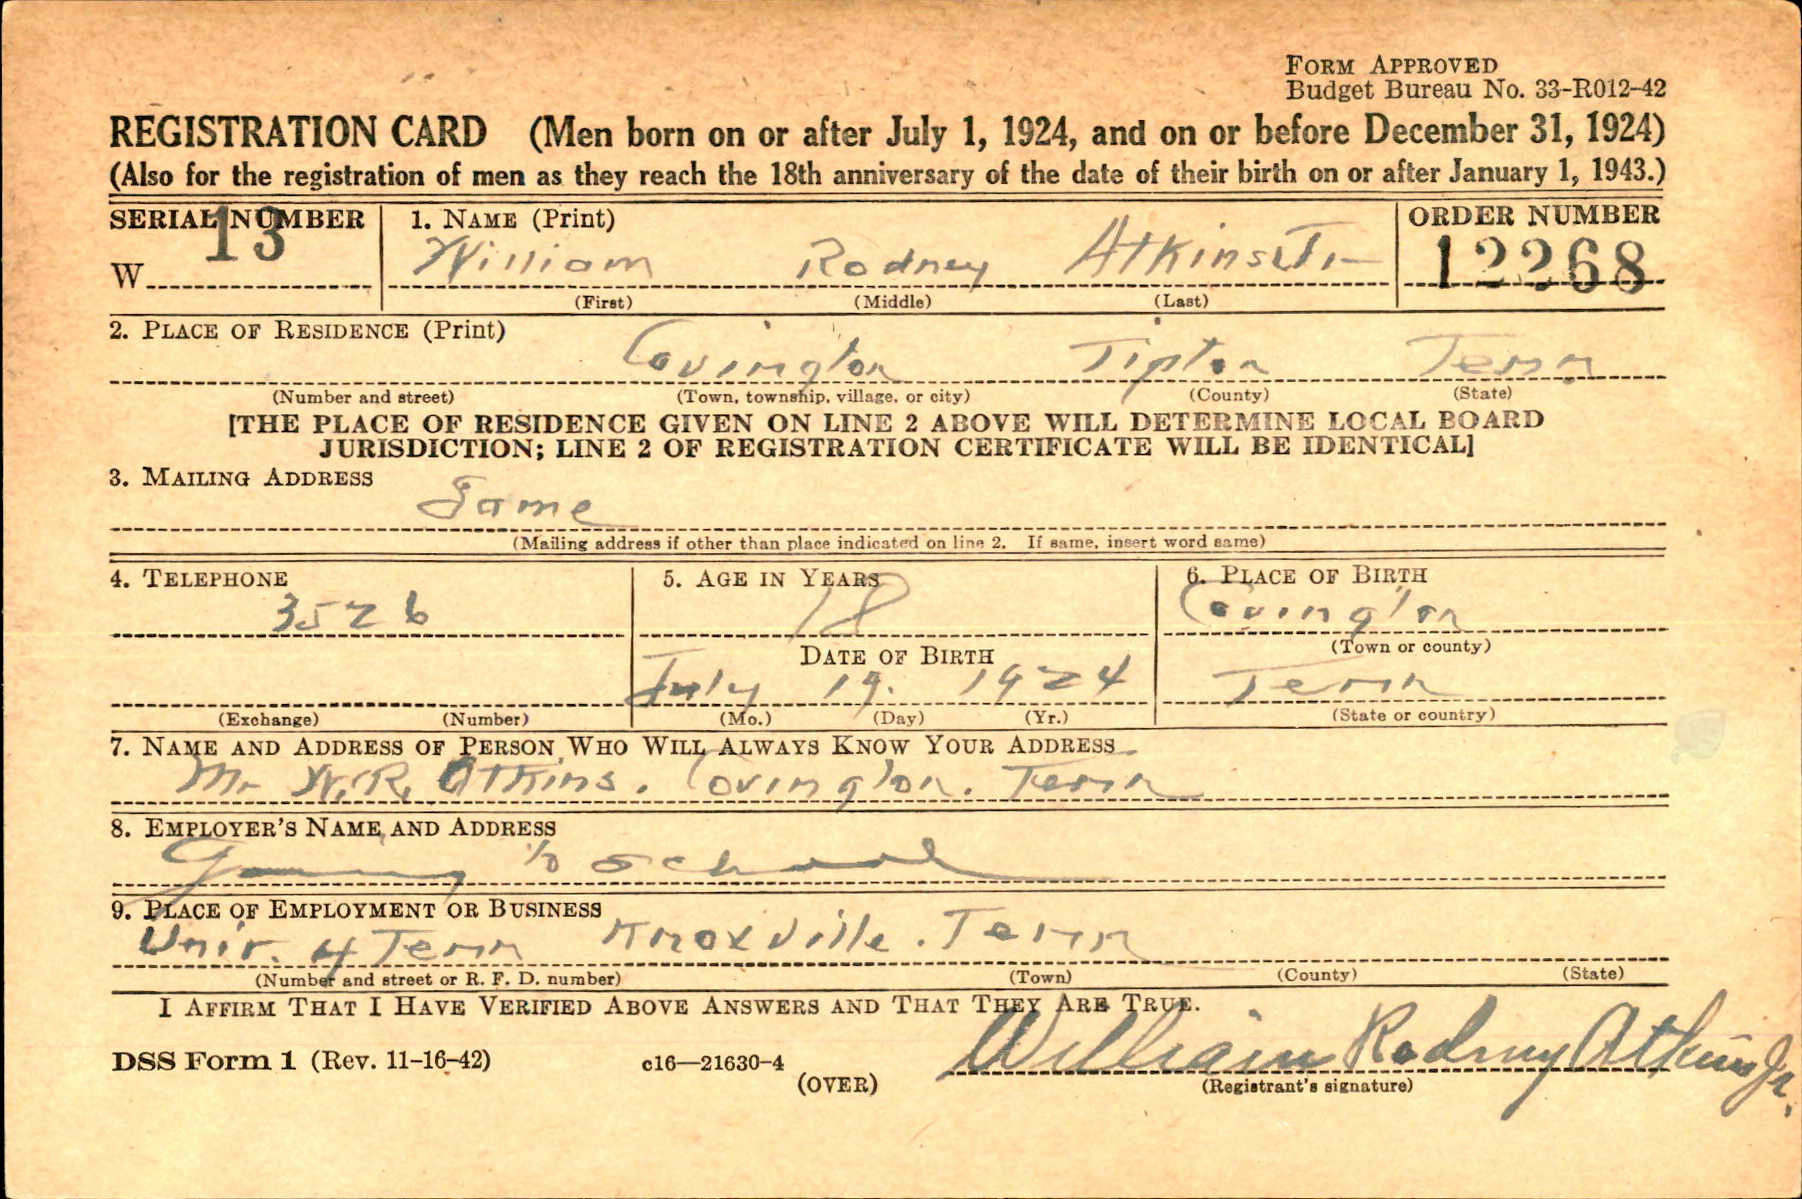 FORM APPROVED
Budget Bureau No. 33-R012-42
REGISTRATION CARD (Men born on or after July 1, 1924, and on or before December 31, 1924)
(Also for the registration of men as they reach the 18th anniversary of the date of their birth on or after January 1, 1943.)
SERIAL NUMBER 1. NAME (Print) ORDER NUMBER
W 13 William Rodney Atkins Jr 12268
(First) (Middle) (Last)
2. PLACE OF RESIDENCE (Print)
Covington Tipton Tenn
(Number and street) (Town, township, village, or city) (County) (State)
[THE PLACE OF RESIDENCE GIVEN ON LINE 2 ABOVE WILL DETERMINE LOCAL BOARD
JURISDICTION; LINE 2 OF REGISTRATION CERTIFICATE WILL BE IDENTICAL]
3. MAILING ADDRESS
Same
(Mailing address if other than place indicated on line 2. If same, insert word same)
4. TELEPHONE 5. AGE IN YEARS 6. PLACE OF BIRTH
3526 18 Covington
(Town or county)
DATE OF BIRTH
July 19. 1924 Tenn
(Exchange) (Number) (Mo.) (Day) (Yr.) (State or country)
7. NAME AND ADDRESS OF PERSON WHO WILL ALWAYS KNOW YOUR ADDRESS
Mr W.R. Atkins. Covington. Tenn
8. EMPLOYER'S NAME AND ADDRESS
school
9. PLACE OF EMPLOYMENT OR BUSINESS
Univ. of Tenn Knoxville. Tenn
(Number and street or R. F. D. number) (Town) (County) (State)
I AFFIRM THAT I HAVE VERIFIED ABOVE ANSWERS AND THAT THEY ARE TRUE.
William Rodney Atkins Jr.
DSS Form 1 (Rev. 11-16-42) c16—21630-4
(OVER) (Registrant's signature)